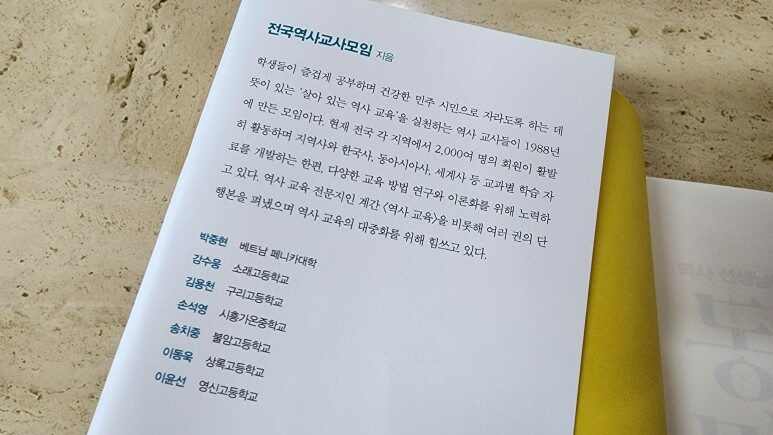 전국역사교사모임 지음
학생들이 즐겁게 공부하며 건강한 민주 시민으로 자라도록 하는 데
뜻이 있는 '살아 있는 역사 교육'을 실천하는 역사 교사들이 1988년
에 만든 모임이다. 현재 전국 각 지역에서 2,000여 명의 회원이 활발
히 활동하며 지역사와 한국사, 동아시아사, 세계사 등 교과별 학습 자
료를 개발하는 한편, 다양한 교육 방법 연구와 이론화를 위해 노력하
고 있다. 역사 교육 전문지인 계간 〈역사 교육〉을 비롯해 여러 권의 단
행본을 펴냈으며 역사 교육의 대중화를 위해 힘쓰고 있다.
박중현 베트남 페니카대학
강수웅 소래고등학교
김용천 구리고등학교
손석영 시흥가온중학교
송치중 불암고등학교
이동욱 상록고등학교
이윤선 영신고등학교